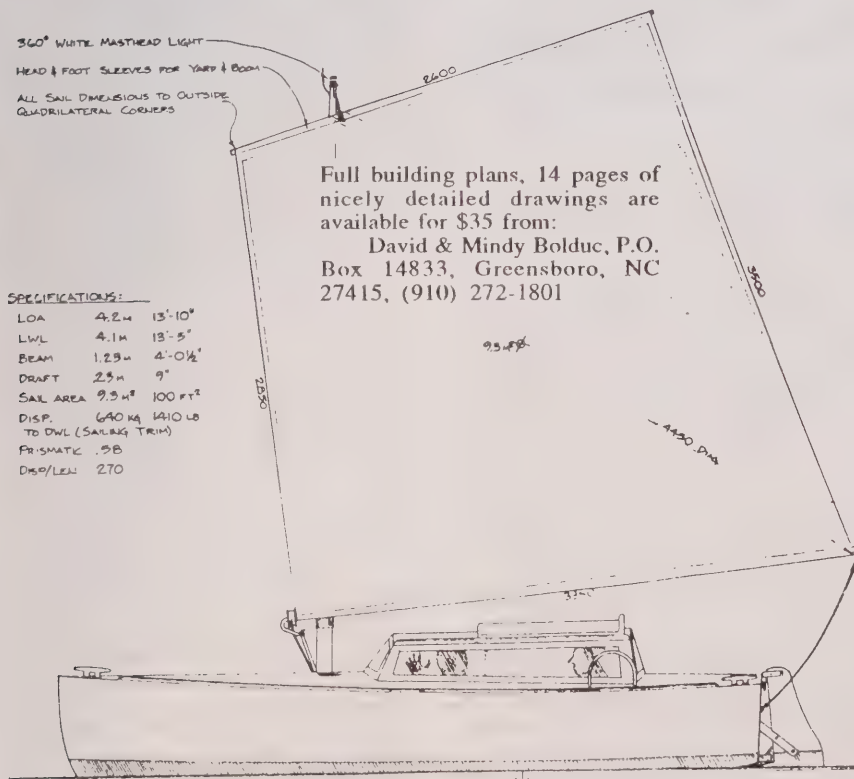 360° WHITE MASTHEAD LIGHT
HEAD & FOOT SLEEVES FOR YARD & BOOM
ALL SAIL DIMENSIONS TO OUTSIDE
QUADRILATERAL CORNERS
2600
Full building plans, 14 pages of
nicely detailed drawings are
available for $35 from:
David & Mindy Bolduc, P.O.
Box 14833, Greensboro, NC
27415, (910) 272-1801
3500
SPECIFICATIONS:
LOA 4.2M 13'-10"
LWL 4.1M 13'-5"
BEAM 1.23M 4'-0½"
DRAFT .23M 9"
SAIL AREA 9.3M² 100 FT²
DISP. 640 KG 1410 LB
TO DWL (SAILING TRIM)
PRISMATIC .58
DISP/LEN 270
2850
9.3 M²
4450 DIAG